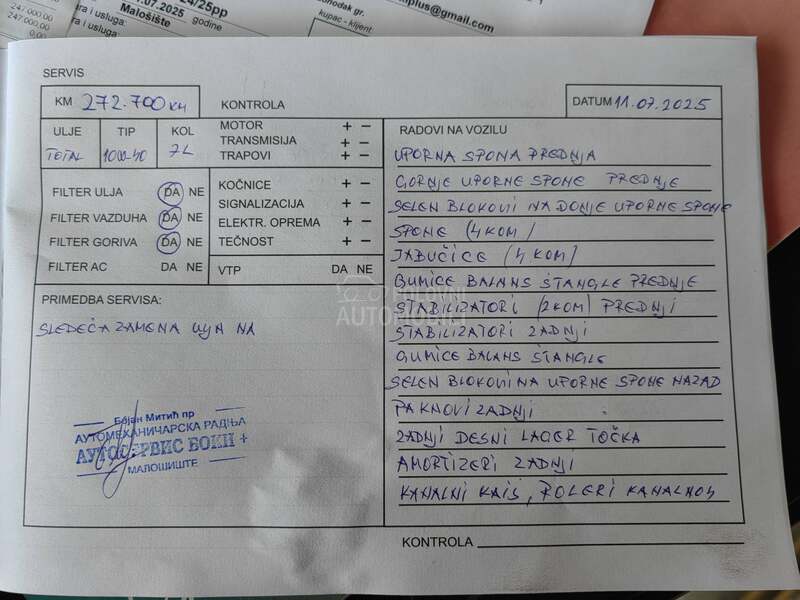 247.000,00
247.000,00
0,00
ra i usluga:
.07.2025
24/25pp
Malošište
godine
ra i usluga:
ponođak gr.
kupac - klijent
nplus@gmail.com
SERVIS
KM 272.700 KM
KONTROLA
DATUM 11.07.2025
ULJE TIP KOL
TOTAL 10W-40 7L
MOTOR + −
TRANSMISIJA + −
TRAPOVI + −
FILTER ULJA DA NE
FILTER VAZDUHA DA NE
FILTER GORIVA DA NE
FILTER AC DA NE
KOČNICE + −
SIGNALIZACIJA + −
ELEKTR. OPREMA + −
TEČNOST + −
VTP DA NE
PRIMEDBA SERVISA:
SLEDEĆA ZAMENA ULJA NA
Бојан Митић пр
АУТОМЕХАНИЧАРСКА РАДЊА
АУТОСЕРВИС БОКИ +
МАЛОШИШТЕ
RADOVI NA VOZILU
UPORNA SPONA PREDNJA
GORNJE UPORNE SPONE PREDNJE
SELEN BLOKOVI NA DONJE UPORNE SPONE
SPONE (4 KOM)
JABUČICE (4 KOM)
GUMICE BALANS ŠTANGLE PREDNJE
STABILIZATORI (2 KOM) PREDNJI
STABILIZATORI ZADNJI
GUMICE BALANS ŠTANGLE
SELEN BLOKOVI NA UPORNE SPONE NAZAD
PAKNOVI ZADNJI
ZADNJI DESNI LAGER TOČKA
AMORTIZERI ZADNJI
KANALNI KAIŠ, ROLERI KANALNOG
KONTROLA
POLOVNI
AUTOMOBILI